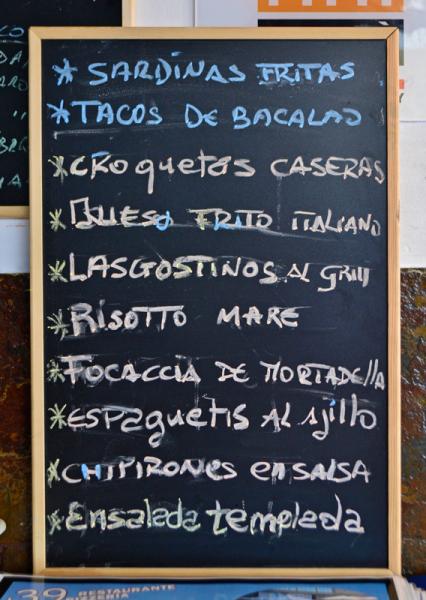 * SARDINAS FRITAS
* TACOS DE BACALAO
* CROquetas CASERAS
* QUESO FRITO ITALIANO
* LASGOSTINOS AL GRill
* RISOTTO MARE
* FOCACCIA DE MORTADEllA
* ESPAguetis AL Ajillo
* CHIPIRONes en SALSA
* Ensalada templada
39 RESTAURANTE
PIZZERIA